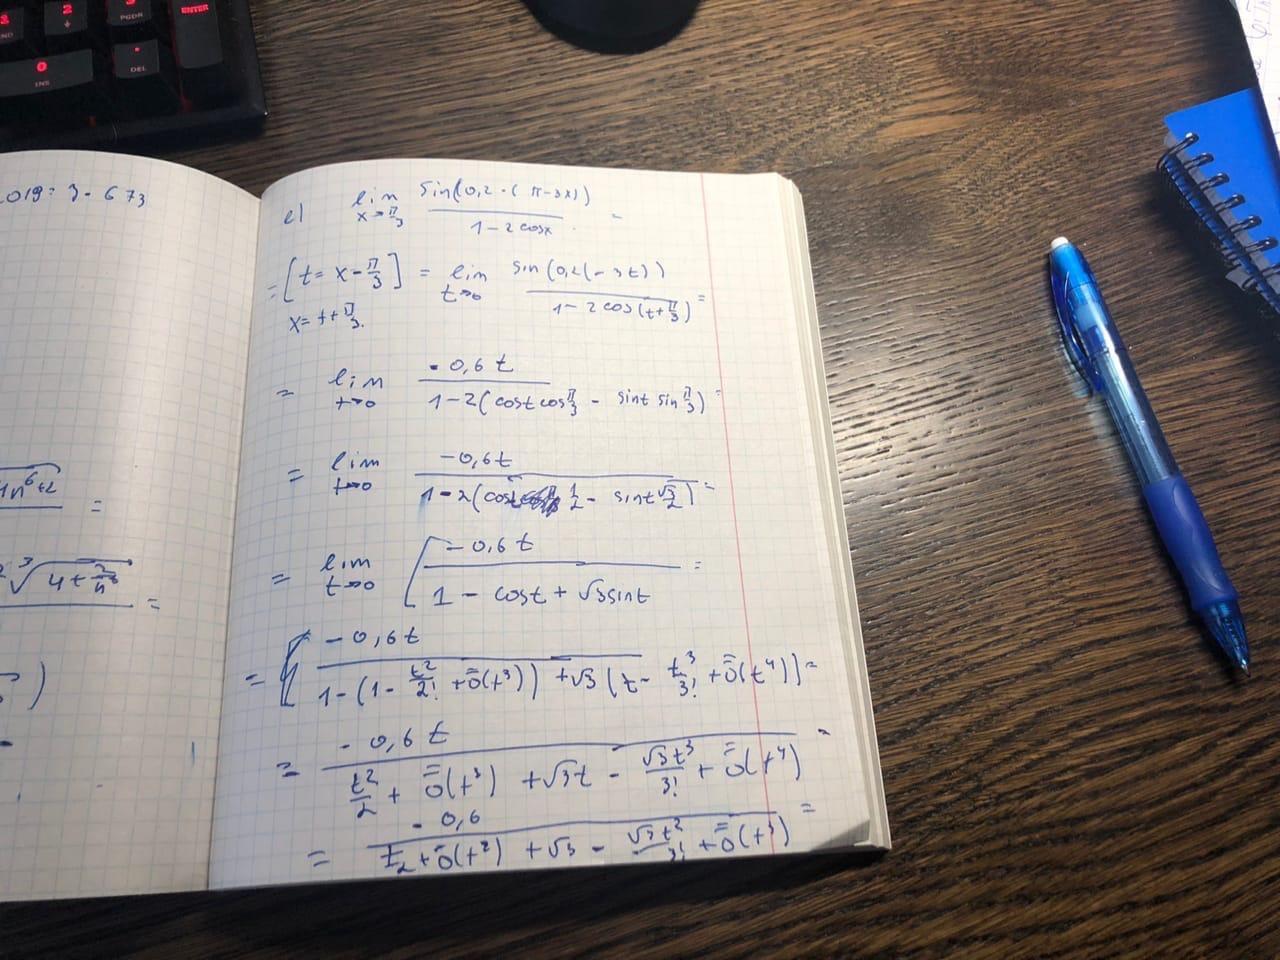 ENTER
PGDR
DEL
0
INS
2019: 3. 673
e) lim x→π/3 sin(0,2·(π-3x)) / 1-2cosx =
= [t = x - π/3] = lim t→0 sin(0,2(-3t)) / 1-2cos(t+π/3) =
x = t+π/3.
= lim t→0 -0,6t / 1-2(cost cos π/3 - sint sin π/3) =
= lim t→0 -0,6t / 1-2(cost 1/2 - sint √3/2) =
= lim t→0 [ -0,6t / 1 - cost + √3sint =
= [ -0,6t / 1-(1- t²/2! + ō(t³)) + √3(t- t³/3! + ō(t⁴)) ] =
= -0,6t / t²/2 + ō(t³) + √3t - √3t³/3! + ō(t⁴) =
= -0,6 / t/2 + ō(t²) + √3 - √3t²/3! + ō(t³) =
4n⁶+2 =
³√4+2/n³ =